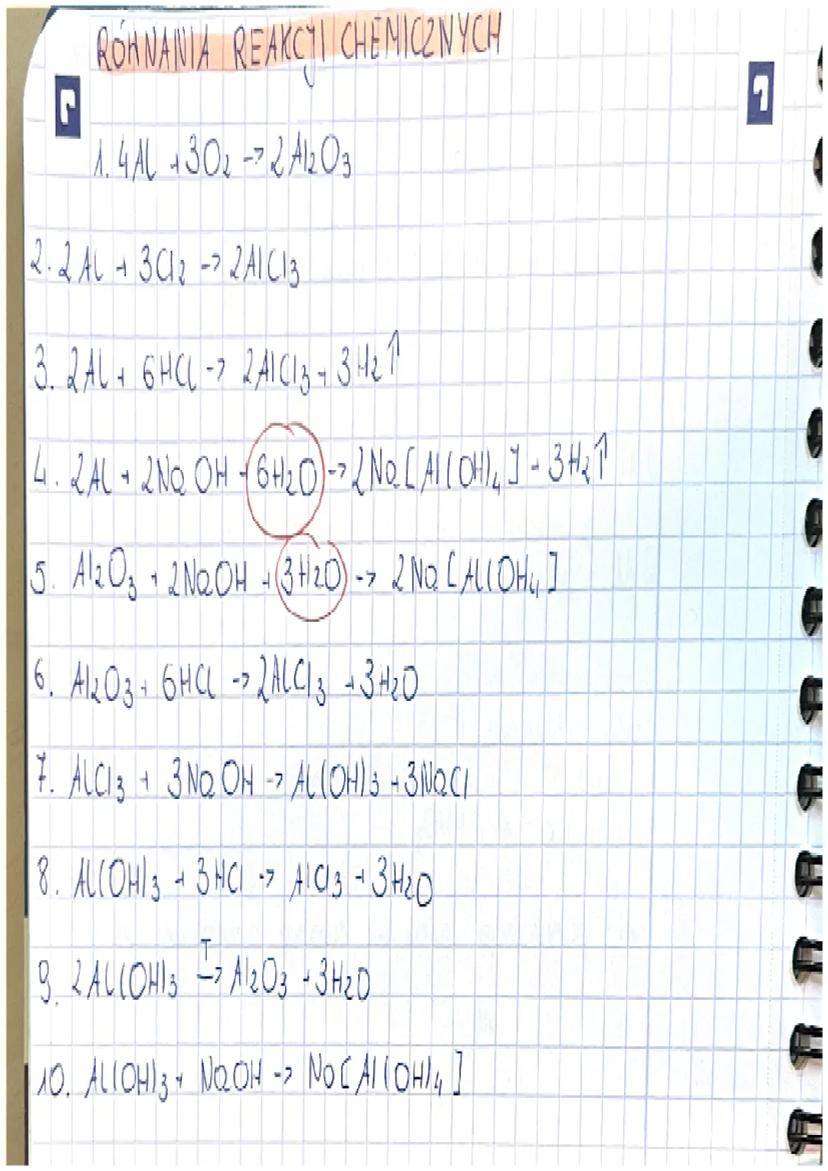 RÓWNANIA REAKCJI CHEMICZNYCH
1. 4Al + 3O₂ → 2Al₂O₃
2. 2Al + 3Cl₂ → 2AlCl₃
3. 2Al + 6HCl → 2AlCl₃ + 3H₂↑
4. 2Al + 2NaOH + 6H₂O → 2Na[Al(OH)₄] + 3H₂↑
5. Al₂O₃ + 2NaOH + 3H₂O → 2Na[Al(OH₄]
6. Al₂O₃ + 6HCl → 2AlCl₃ + 3H₂O
7. AlCl₃ + 3NaOH → Al(OH)₃ + 3NaCl
8. Al(OH)₃ + 3HCl → AlCl₃ + 3H₂O
9. 2Al(OH)₃ T→ Al₂O₃ + 3H₂O
10. Al(OH)₃ + NaOH → Na[Al(OH)₄]